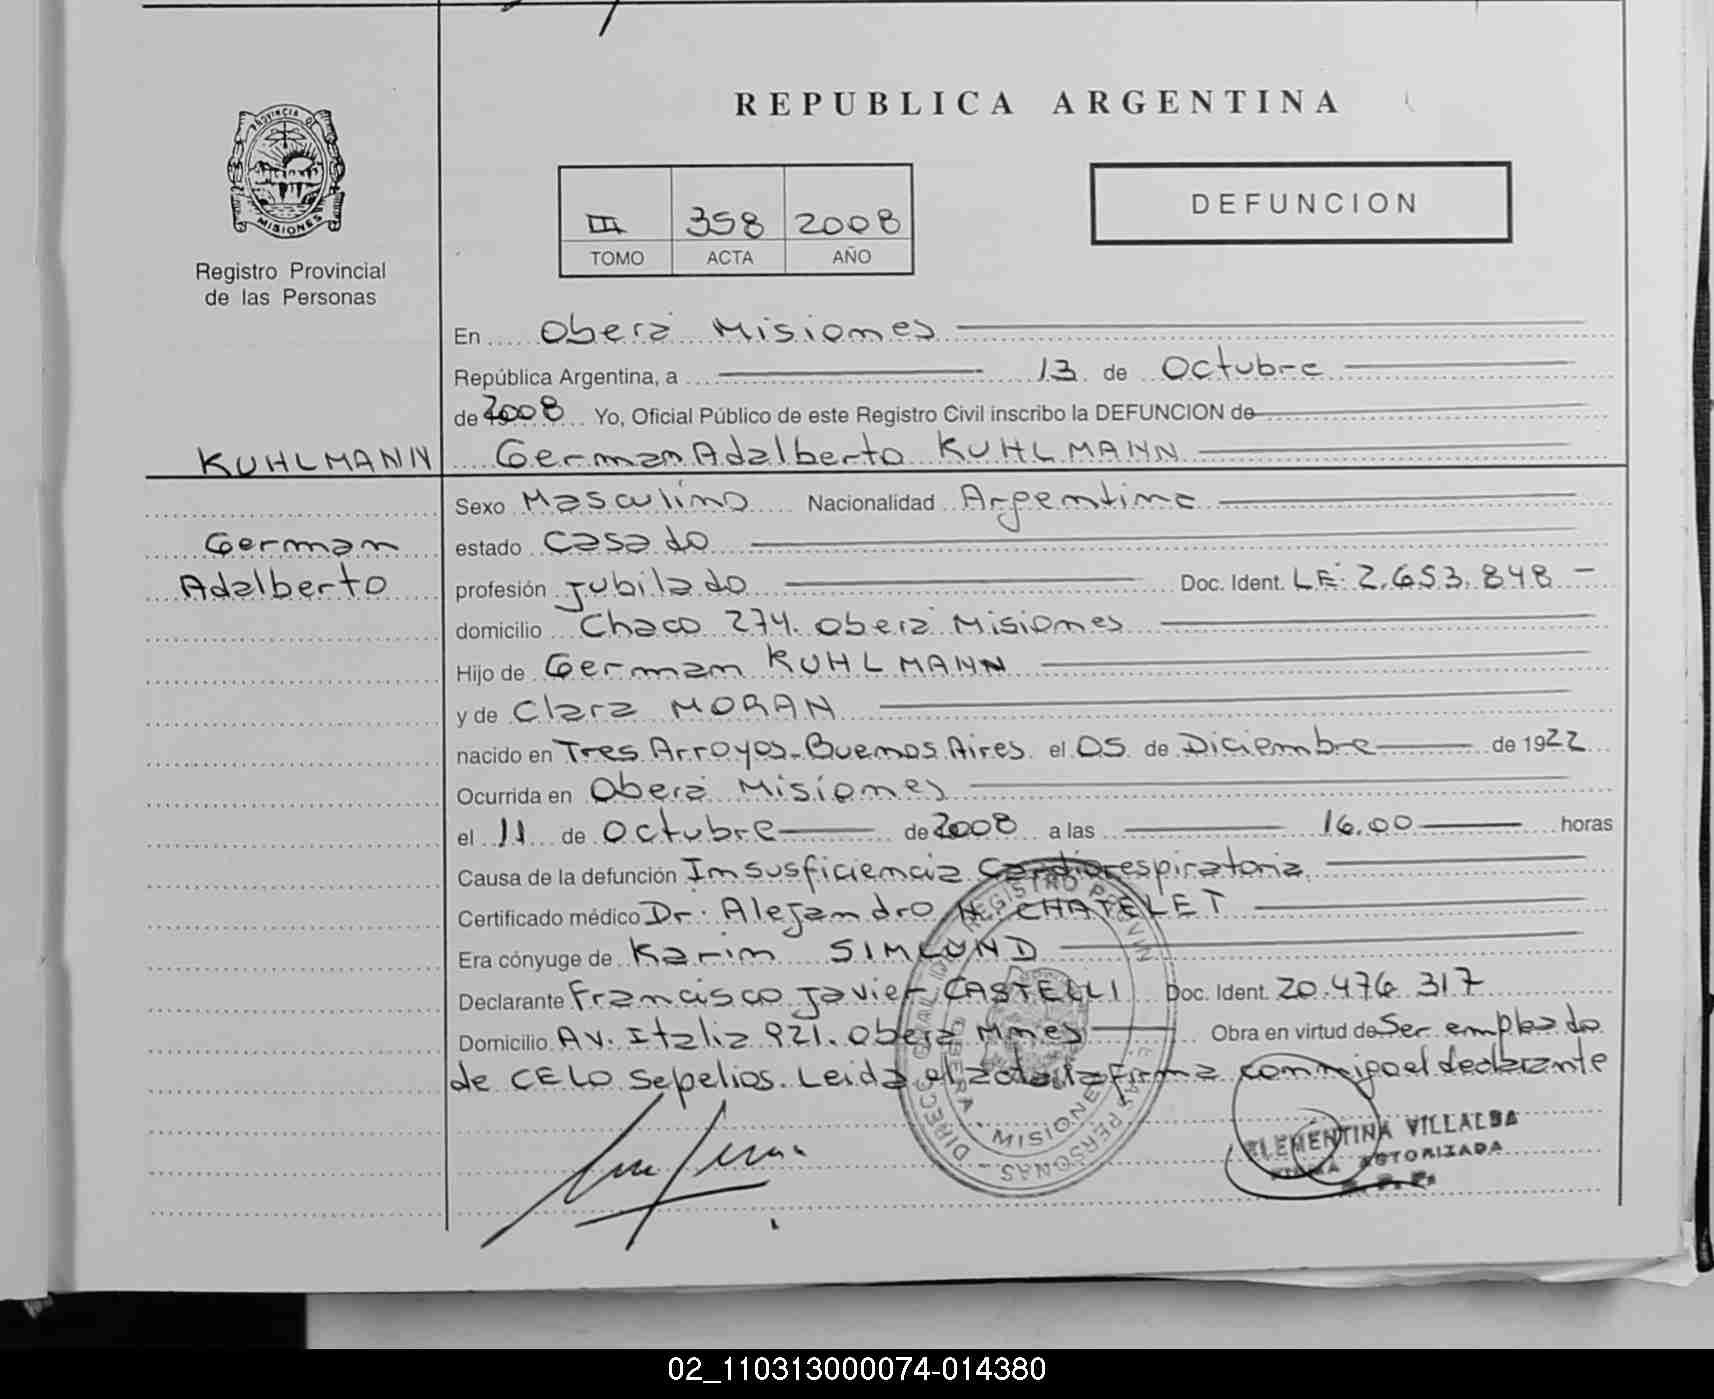 REPUBLICA ARGENTINA
PROVINCIA DE
MISIONES
Registro Provincial
de las Personas
III 358 2008
TOMO ACTA AÑO
DEFUNCION
En Oberá Misiones
República Argentina, a 13 de Octubre
de 2008 Yo, Oficial Público de este Registro Civil inscribo la DEFUNCION de
KUHLMANN
German Adalberto KUHLMANN
German
Adalberto
Sexo Masculino Nacionalidad Argentina
estado Casado
profesión Jubilado Doc. Ident. LE: 2.653.848 -
domicilio Chaco 274. Oberá Misiones
Hijo de German KUHLMANN
y de Clara MORAN
nacido en Tres Arroyos-Buenos Aires el 05 de Diciembre de 1922
Ocurrida en Oberá Misiones
el 11 de Octubre de 2008 a las 16.00 horas
Causa de la defunción Insusficiencia Cardiorespiratoria
Certificado médico Dr: Alejandro H. CHATELET
Era cónyuge de Karin SIMLUND
Declarante Francisco Javier CASTELLI Doc. Ident. 20.476 317
Domicilio Av. Italia 921. Oberá Mnes Obra en virtud de Ser empleado
de CELO Sepelios. Leida el acta la firma conmigo el declarante
MISIONES
CLEMENTINA VILLALBA
FIRMA AUTORIZADA
R. P. P.
02_110313000074-014380